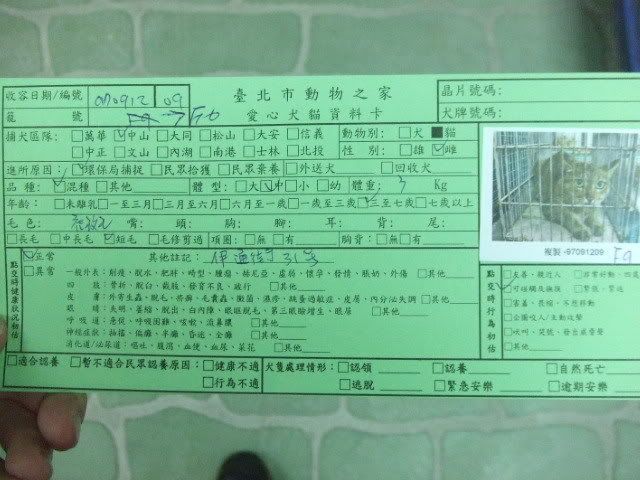 收容日期/編號 070912 09 臺北市動物之家 晶片號碼:
籠 號 愛心犬貓資料卡 犬牌號碼:
捕犬區隊: □萬華 ☑中山 □大同 □松山 □大安 □信義 動物別: □犬 ■貓
□中正 □文山 □內湖 □南港 □士林 □北投 性 別: □雄 ☑雌
進所原因: ☑環保局捕捉 □民眾拾獲 □民眾棄養 □外送犬 □回收犬
品 種: ☑混種 □其他 體 型: □大 ☑中 □小 □幼 體重: Kg
年齡: □未離乳 □一至三月 □三至六月 □六月至一歲 □一歲至三歲 ☑三至七歲 □七歲以上
毛 色: 虎斑 嘴: 頭: 胸: 腳: 耳: 背: 尾:
□長毛 □中長毛 ☑短毛 □毛修剪過 項圈: □無 □有 胸背: □無 □有
複製 -97091209
點交時健康狀況初估
☑正常 其他註記: 伊通街 31號
□異常 一般外表: 削瘦、脫水、肥胖、畸型、腫瘤、赫尼亞、虛弱、懷孕、發情、脹奶、外傷 □其他
四 肢: 骨折、脫臼、截肢、發育不良、跛行 □其他
皮 膚: 外寄生蟲、脫毛、疥癬、毛囊蟲、黴菌、濕疹、跳蚤過敏症、皮屑、內分泌失調 □其他
眼 睛: 失明、萎縮、脫出、白內障、眼瞼脫毛、第三眼瞼增生、眼屎 □其他
呼 吸 道: 急促、呼吸困難、咳嗽、流鼻膿 □其他
神經症狀: 抽搐、偏癱、半癱、昏迷、全癱 □其他
消化道/泌尿道: 嘔吐、腹瀉、血便、血尿、菜花 □其他
點交時行為初估
□友善、親近人 □非常好動、四處
☑可碰觸及撫摸 □緊張、緊迫
□害羞、畏縮、不想移動
□企圖咬人/主動攻擊
□吠叫、哭號、發出威脅聲
□其他
□適合認養 □暫不適合民眾認養原因: □健康不適 犬隻處理情形: □認領 □認養 □自然死亡
□行為不適 □逃脫 □緊急安樂 □逾期安樂